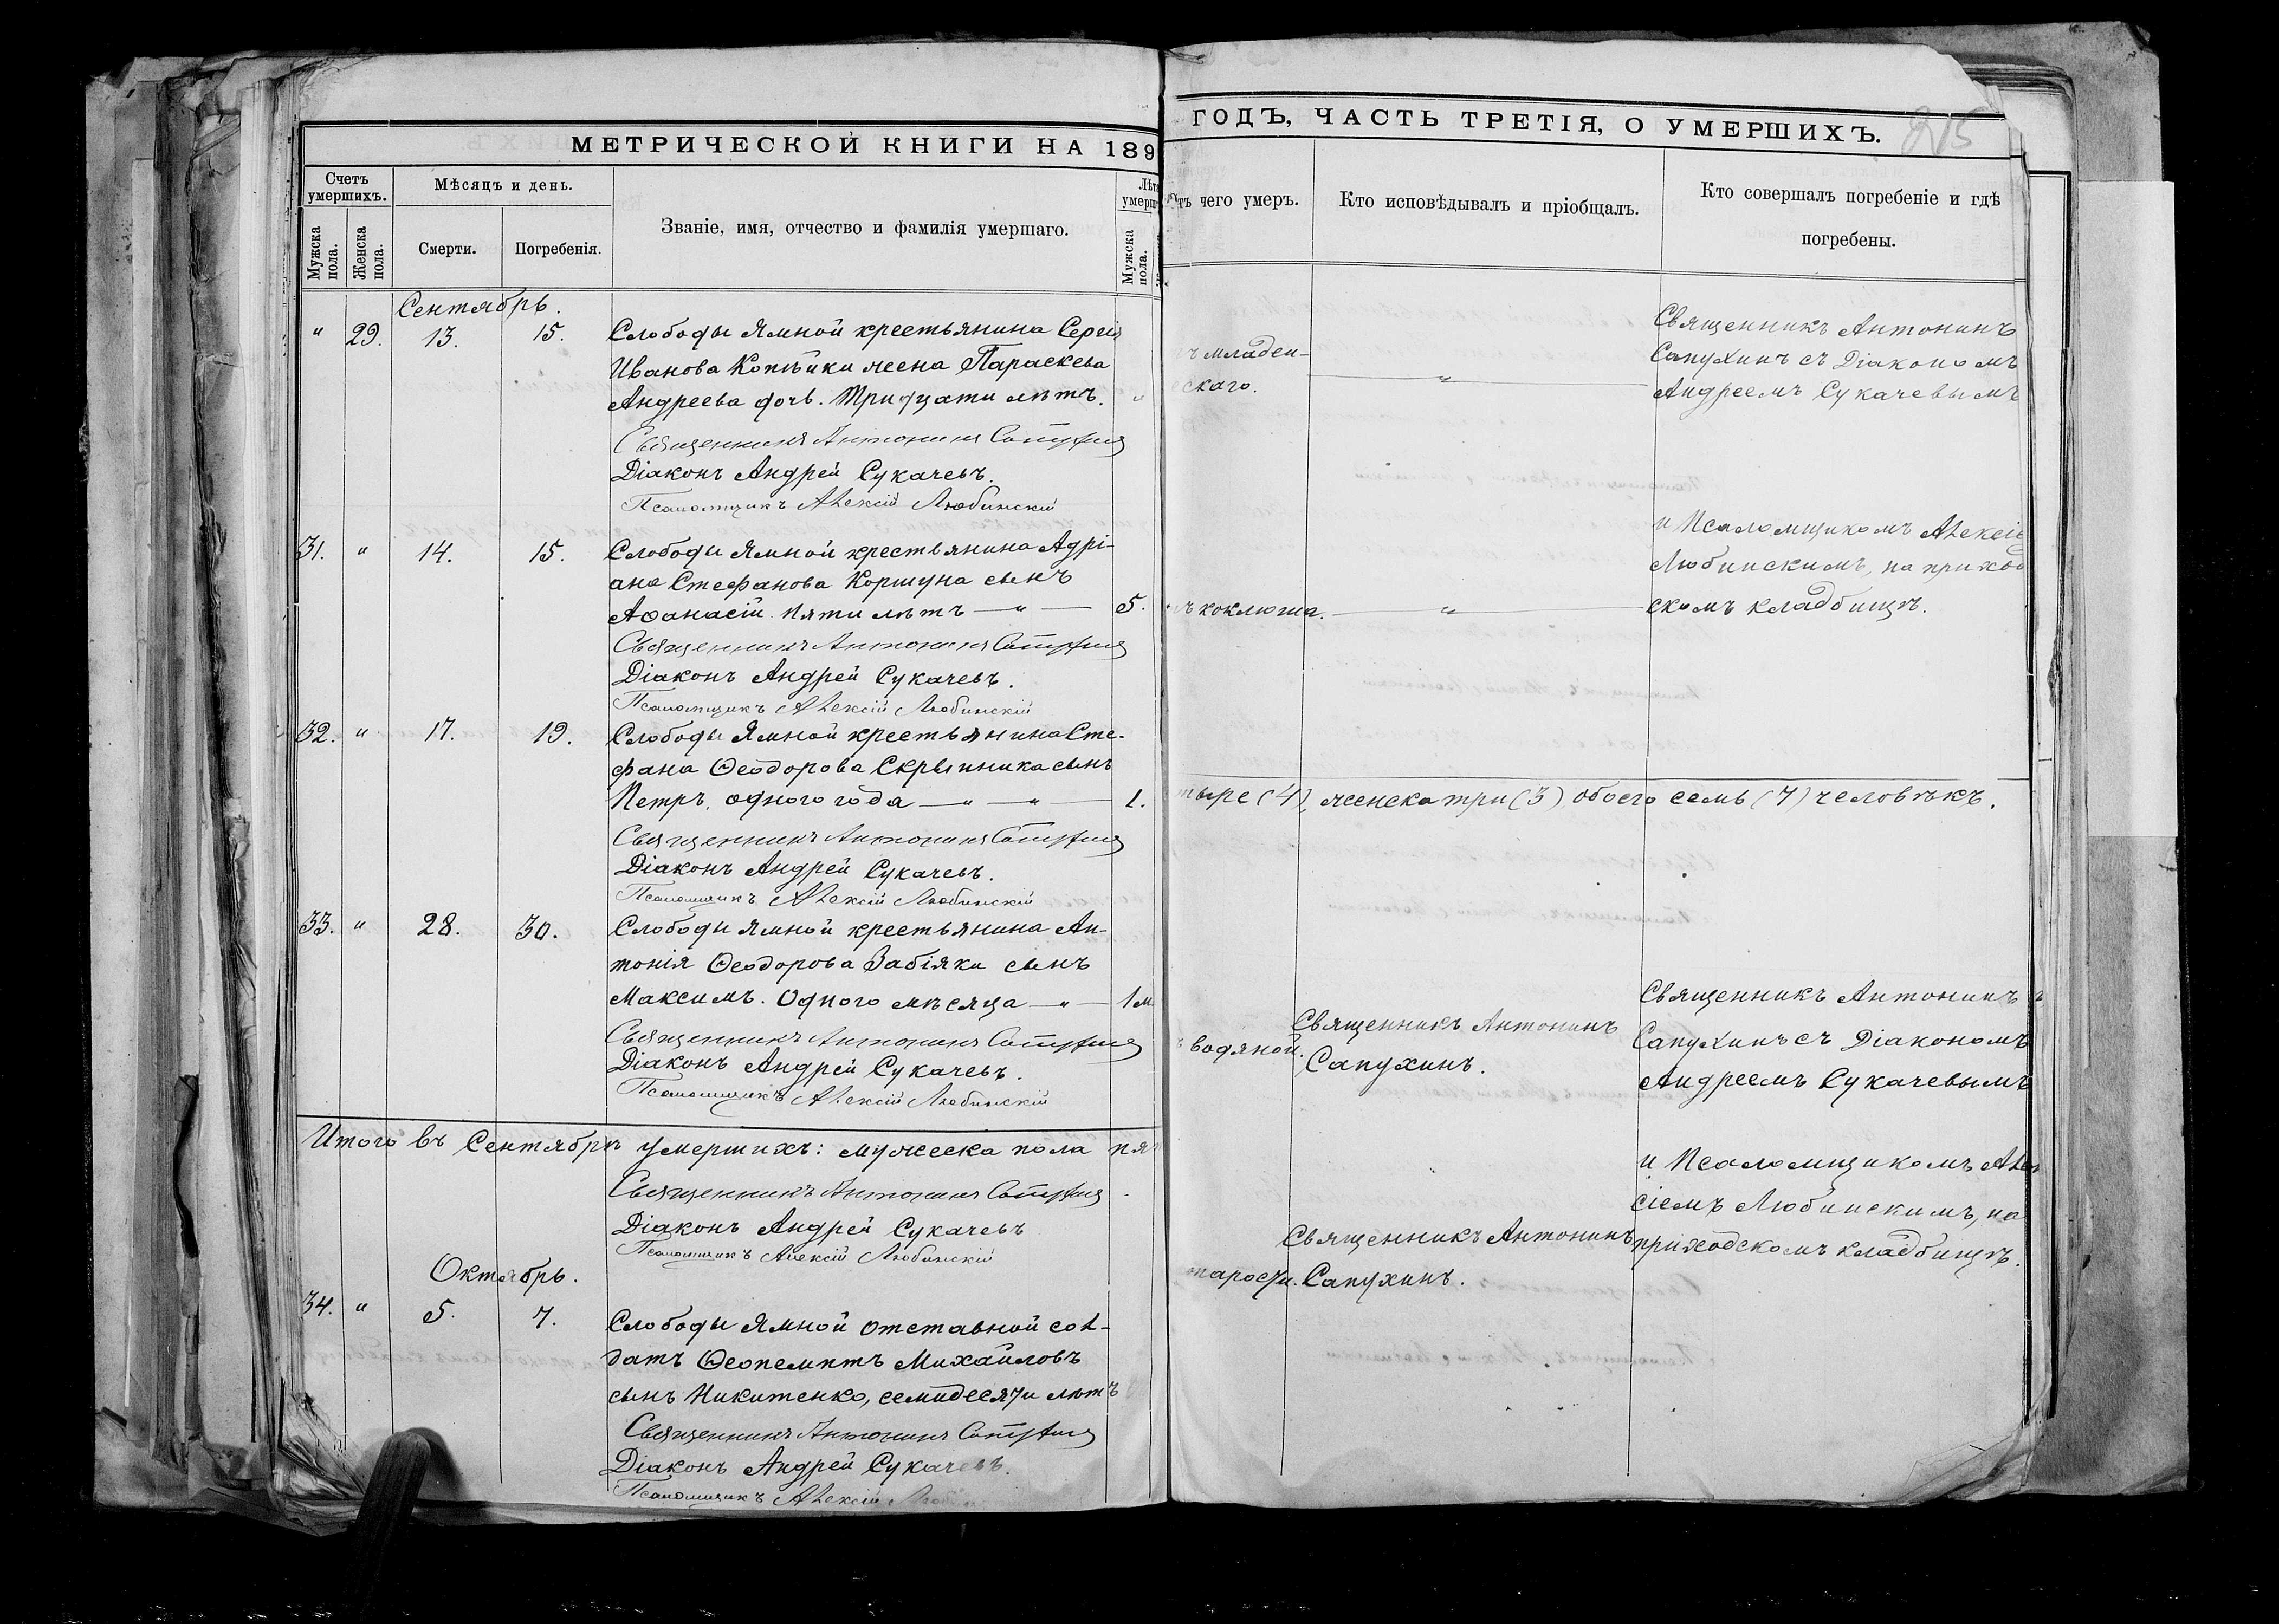 МЕТРИЧЕСКОЙ КНИГИ НА 189
Счетъ умершихъ.
Мѣсяцъ и день.
Званіе, имя, отчество и фамилія умершаго.
Мужска пола.
Женска пола.
Смерти.
Погребенія.
Мужска пола.
Сентябрь.
" 29. 13. 15. Слободы Ямной крестьянина Сергія
Иванова Копѣйки жена Параскева
Андреева дочь. Тридцати лѣтъ. "
Священникъ Антонинъ Сапухинъ
Діаконъ Андрей Сукачевъ.
Псаломщикъ Алексій Любинскій
31. " 14. 15. Слободы Ямной крестьянина Адрі-
ана Стефанова Коршуна сынъ
Аѳанасій. Пяти лѣтъ — " — 5.
Священникъ Антонинъ Сапухинъ
Діаконъ Андрей Сукачевъ.
Псаломщикъ Алексій Любинскій
32. " 17. 19. Слободы Ямной крестьянина Сте-
фана Ѳеодорова Скрыпника сынъ
Петръ. одного года — " — " — 1.
Священникъ Антонинъ Сапухинъ
Діаконъ Андрей Сукачевъ.
Псаломщикъ Алексій Любинскій
33. " 28. 30. Слободы Ямной крестьянина Ан-
тонія Ѳеодорова Забіяки сынъ
Максимъ. Одного мѣсяца — " — 1 м
Священникъ Антонинъ Сапухинъ
Діаконъ Андрей Сукачевъ.
Псаломщикъ Алексій Любинскій
Итого въ Сентябрѣ умершихъ: мужеска пола пя
Священникъ Антонинъ Сапухинъ
Діаконъ Андрей Сукачевъ
Псаломщикъ Алексій Любинскій
Октябрь.
34. " 5. 7. Слободы Ямной отставной сол-
датъ Ѳеопемптъ Михайловъ
сынъ Никитенко, семидесяти лѣтъ
Священникъ Антонинъ Сапухинъ
Діаконъ Андрей Сукачевъ.
Псаломщикъ Алексій
ГОДЪ, ЧАСТЬ ТРЕТІЯ, О УМЕРШИХЪ.
215
тъ чего умеръ.
Кто исповѣдывалъ и пріобщалъ.
Кто совершалъ погребеніе и гдѣ
погребены.
Священникъ Антонинъ
Сапухинъ съ Діакономъ
Андреемъ Сукачевымъ
ъ младен-
скаго. — " —
и Псаломщикомъ Алексіе
Любинскимъ, на приход
скомъ кладбищѣ.
ъ коклюша. — " —
тыре (4), женска три (3) обоего семь (7) человѣкъ.
Священникъ Антонинъ
Сапухинъ съ Діакономъ
Андреемъ Сукачевымъ
водяной. Священникъ Антонинъ
Сапухинъ.
и Псаломщикомъ Алек
сіемъ Любинскимъ, на
приходскомъ кладбищѣ.
Священникъ Антонинъ
тарости. Сапухинъ.